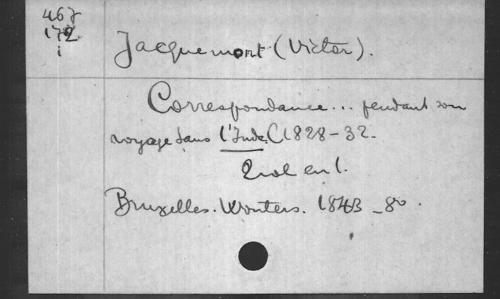 467
172
i
Jacquemont (Victor).
Correspondance... pendant son
voyage dans l'Inde (1828-32.
2 vol en 1.
Bruxelles. Wouters. 1843 - 80.